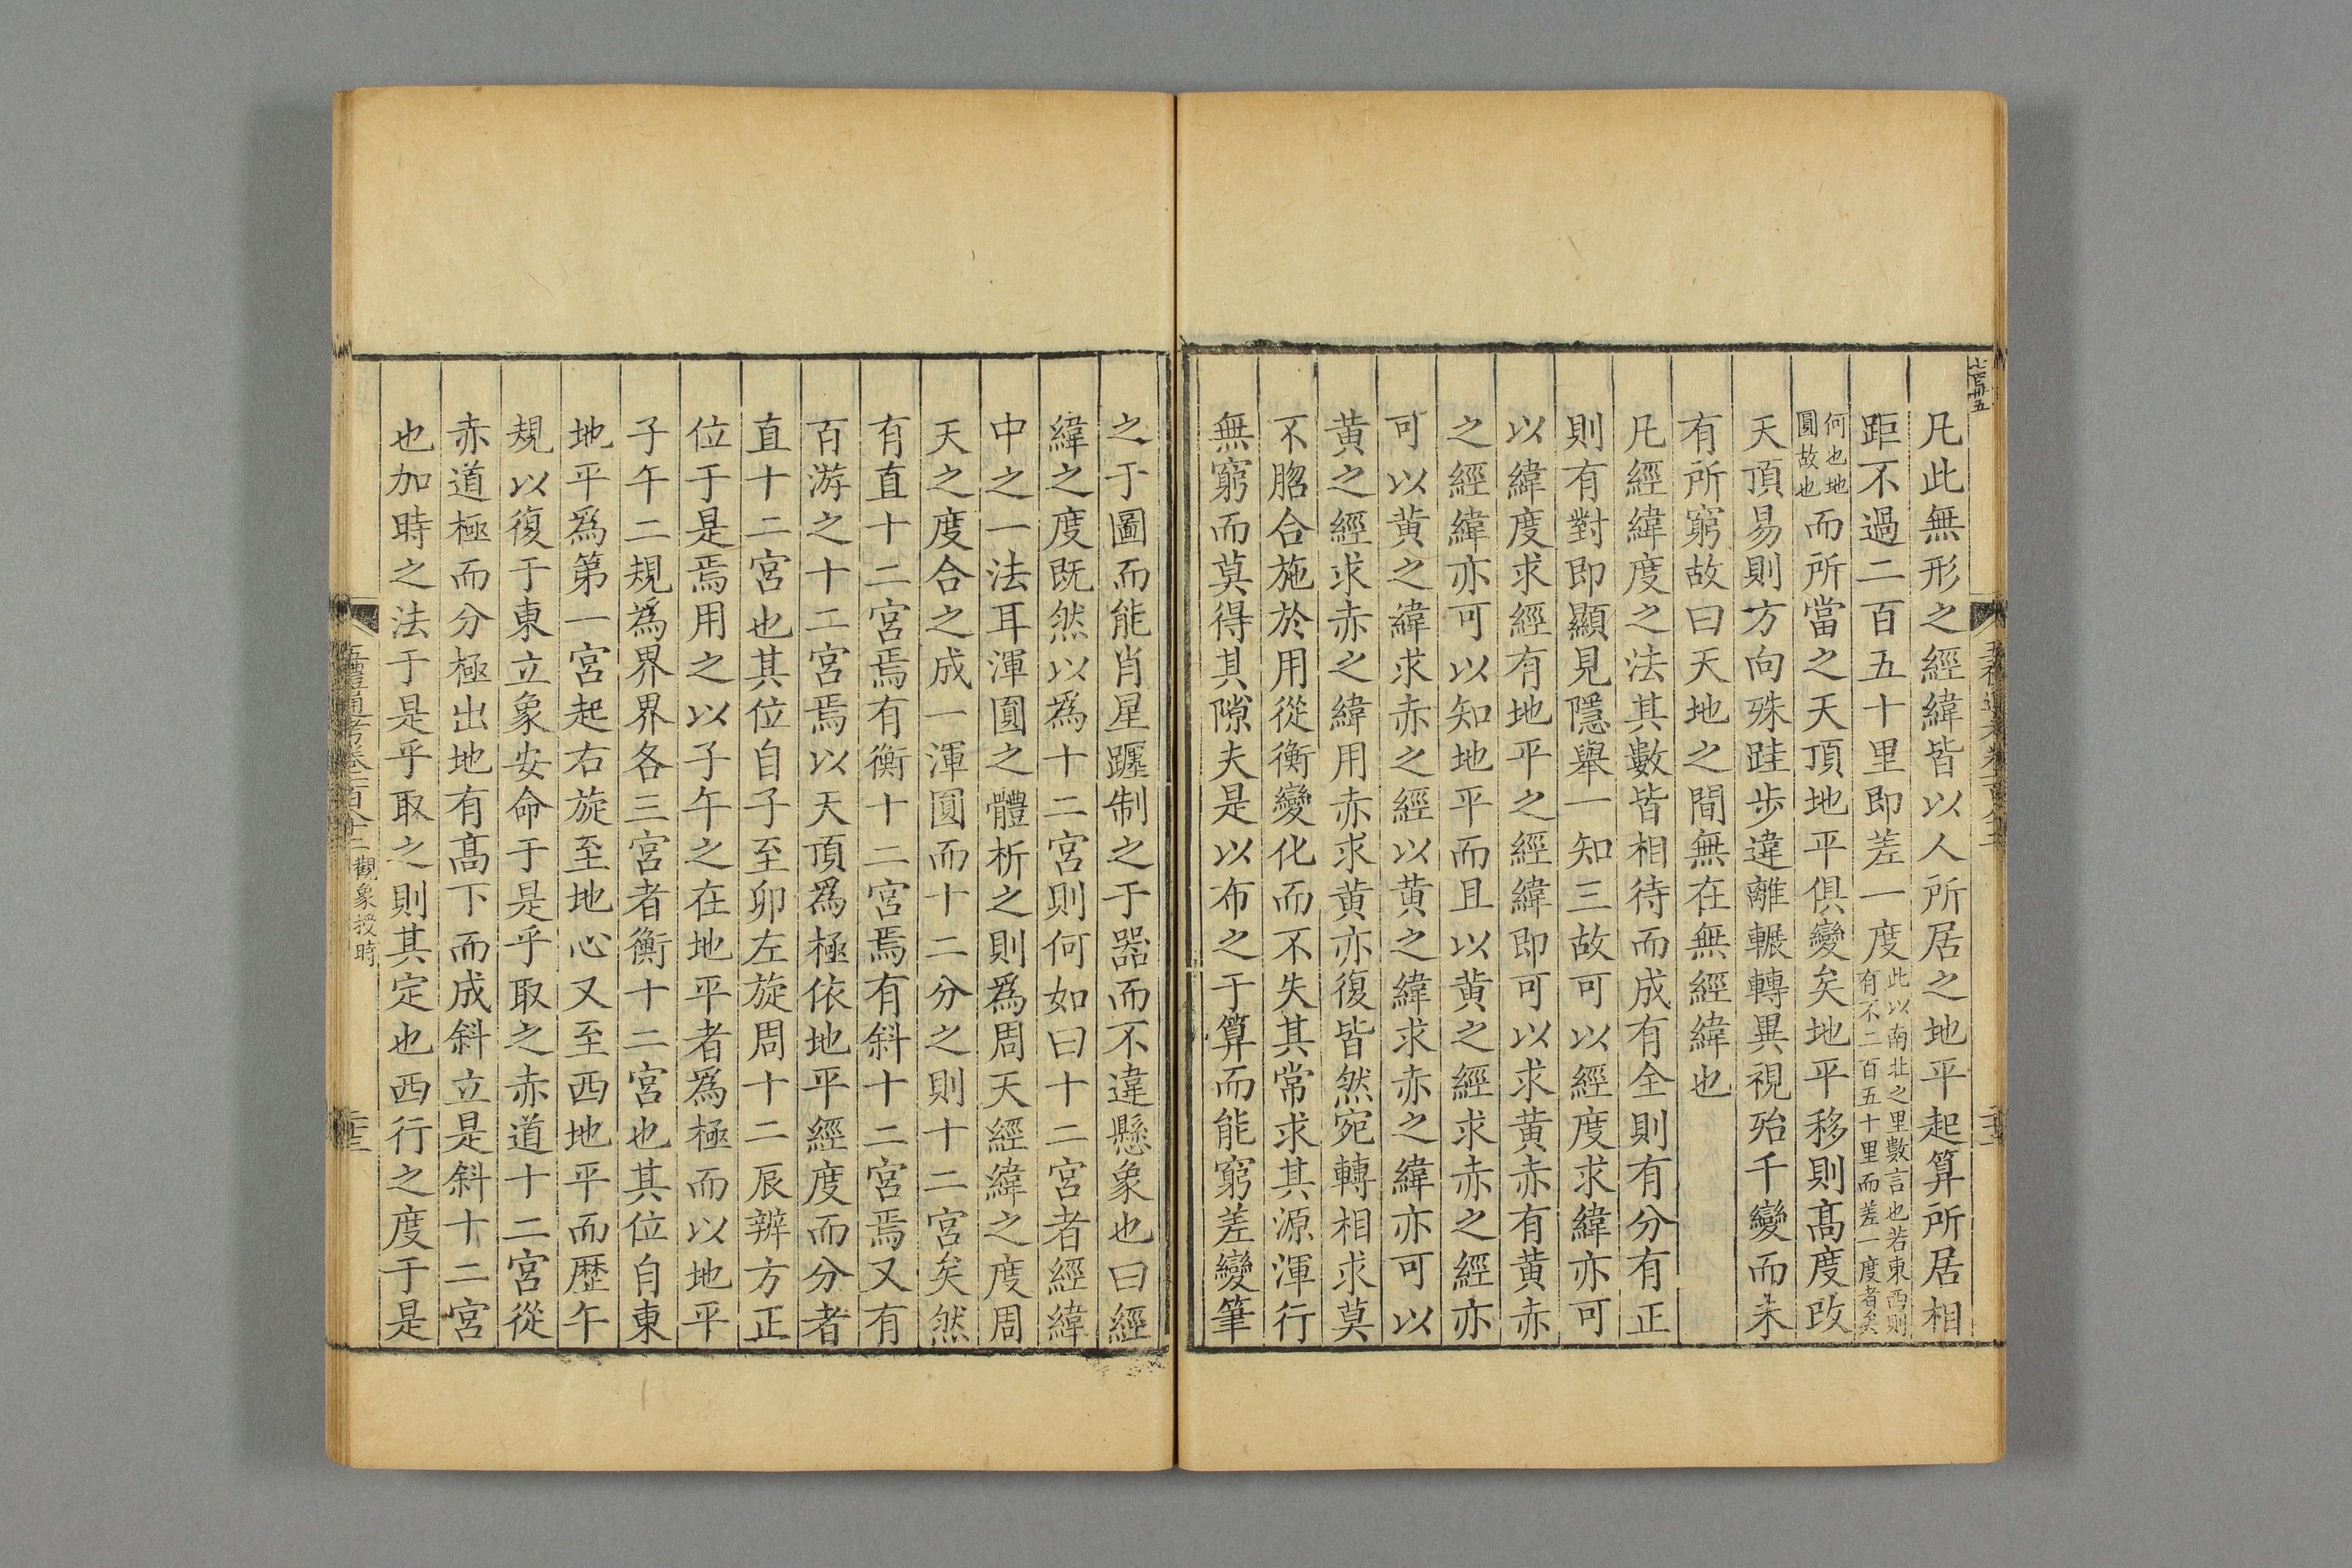 凡此無形之經緯皆以人所居之地平起算所居相
距不過二百五十里即差一度此以南北之里數言也若東西則有不二百五十里而差一度者矣
何也地圓故也而所當之天頂地平俱變矣地平移則髙度改
天頂易則方向殊跬步違離輾轉異視殆千變而未
有所窮故曰天地之間無在無經緯也
凡經緯度之法其數皆相待而成有全則有分有正
則有對即顯見隱舉一知三故可以經度求緯亦可
以緯度求經有地平之經緯即可以求黄赤有黄赤
之經緯亦可以知地平而且以黄之經求赤之經亦
可以黄之緯求赤之經以黄之緯求赤之緯亦可以
黄之經求赤之緯用赤求黄亦復皆然宛轉相求莫
不脗合施於用從衡變化而不失其常求其源渾行
無窮而莫得其隙夫是以布之于算而能窮差變筆
之于圖而能肖星躔制之于器而不違懸象也曰經
緯之度既然以為十二宮則何如曰十二宮者經緯
中之一法耳渾圓之體析之則為周天經緯之度周
天之度合之成一渾圓而十二分之則十二宮矣然
有直十二宮焉有衡十二宮焉有斜十二宮焉又有
百游之十二宮焉以天頂為極依地平經度而分者
直十二宮也其位自子至卯左旋周十二辰辨方正
位于是焉用之以子午之在地平者為極而以地平
子午二規為界界各三宮者衡十二宮也其位自東
地平為第一宮起右旋至地心又至西地平而歷午
規以復于東立象安命于是乎取之赤道十二宮從
赤道極而分極出地有髙下而成斜立是斜十二宮
也加時之法于是乎取之則其定也西行之度于是
五禮通考卷一百八十二 觀象授時